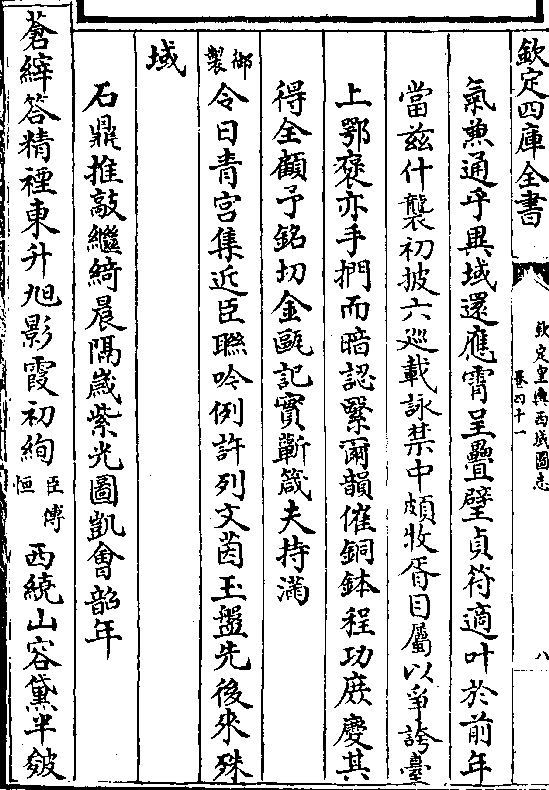 欽定四庫全書
欽定皇輿西域圖志
卷四十一
八
氣兼通乎異域還應霄呈疊璧貞符適叶於前年
當兹什襲初披六巡載詠禁中頗牧胥目屬以爭誇臺
上鄂褒亦手捫而暗認繄爾韻催銅鉢程功庶慶其
得全顧予銘切金甌記實蘄箴夫持滿
御製令日青宮集近臣聯吟例許列文茵玉盤先後來殊
域
石鼎推敲繼綺晨隔嵗紫光圖凱會韶年
蒼縡答精禋東升旭影霞初絢臣傅恒西繞山容黛半皴